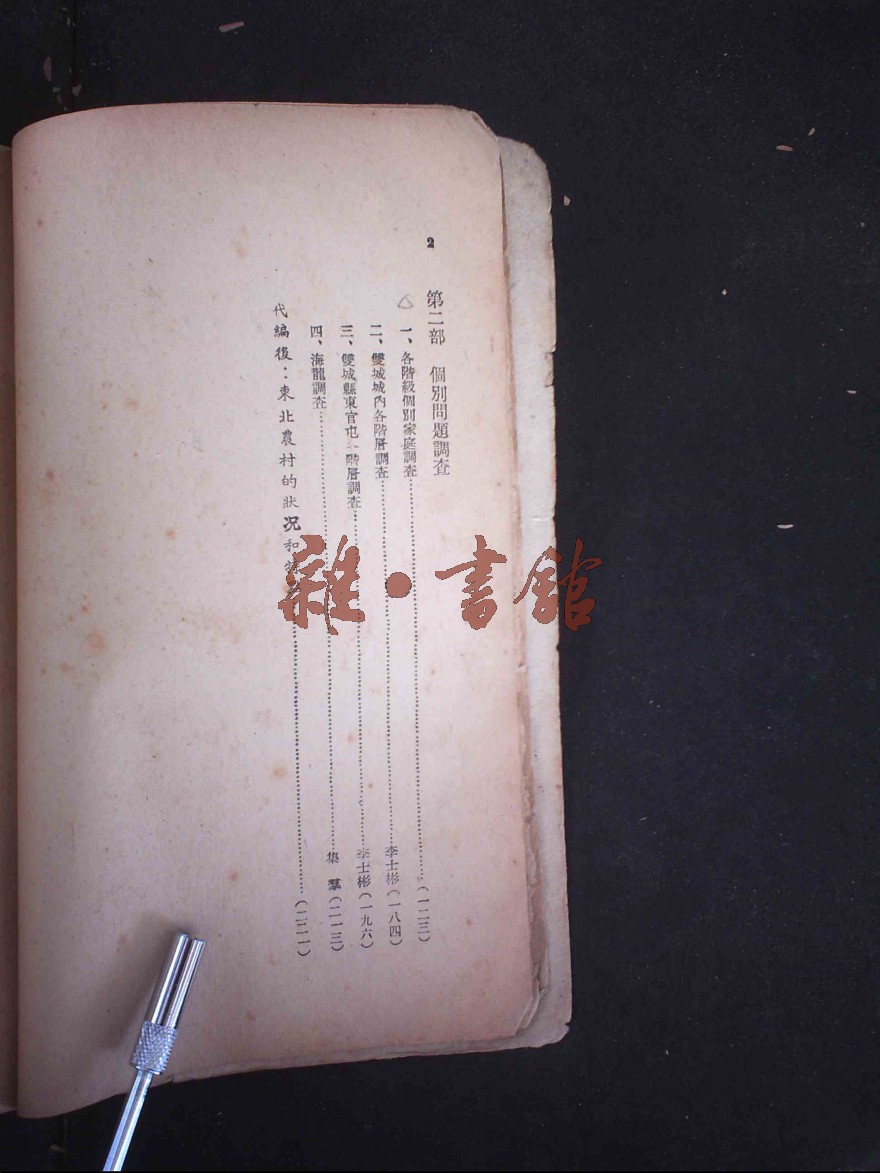 2
第二部　個別問題調查
一、各階級個別家庭調查……(一二三)
二、雙城城內各階層調查……李士彬(一八四)
三、雙城縣東官屯一階層調查……李士彬(一九六)
四、海龍調查……集羣(二一三)
代編後：東北農村的狀况和……(二二一)
雜•書館